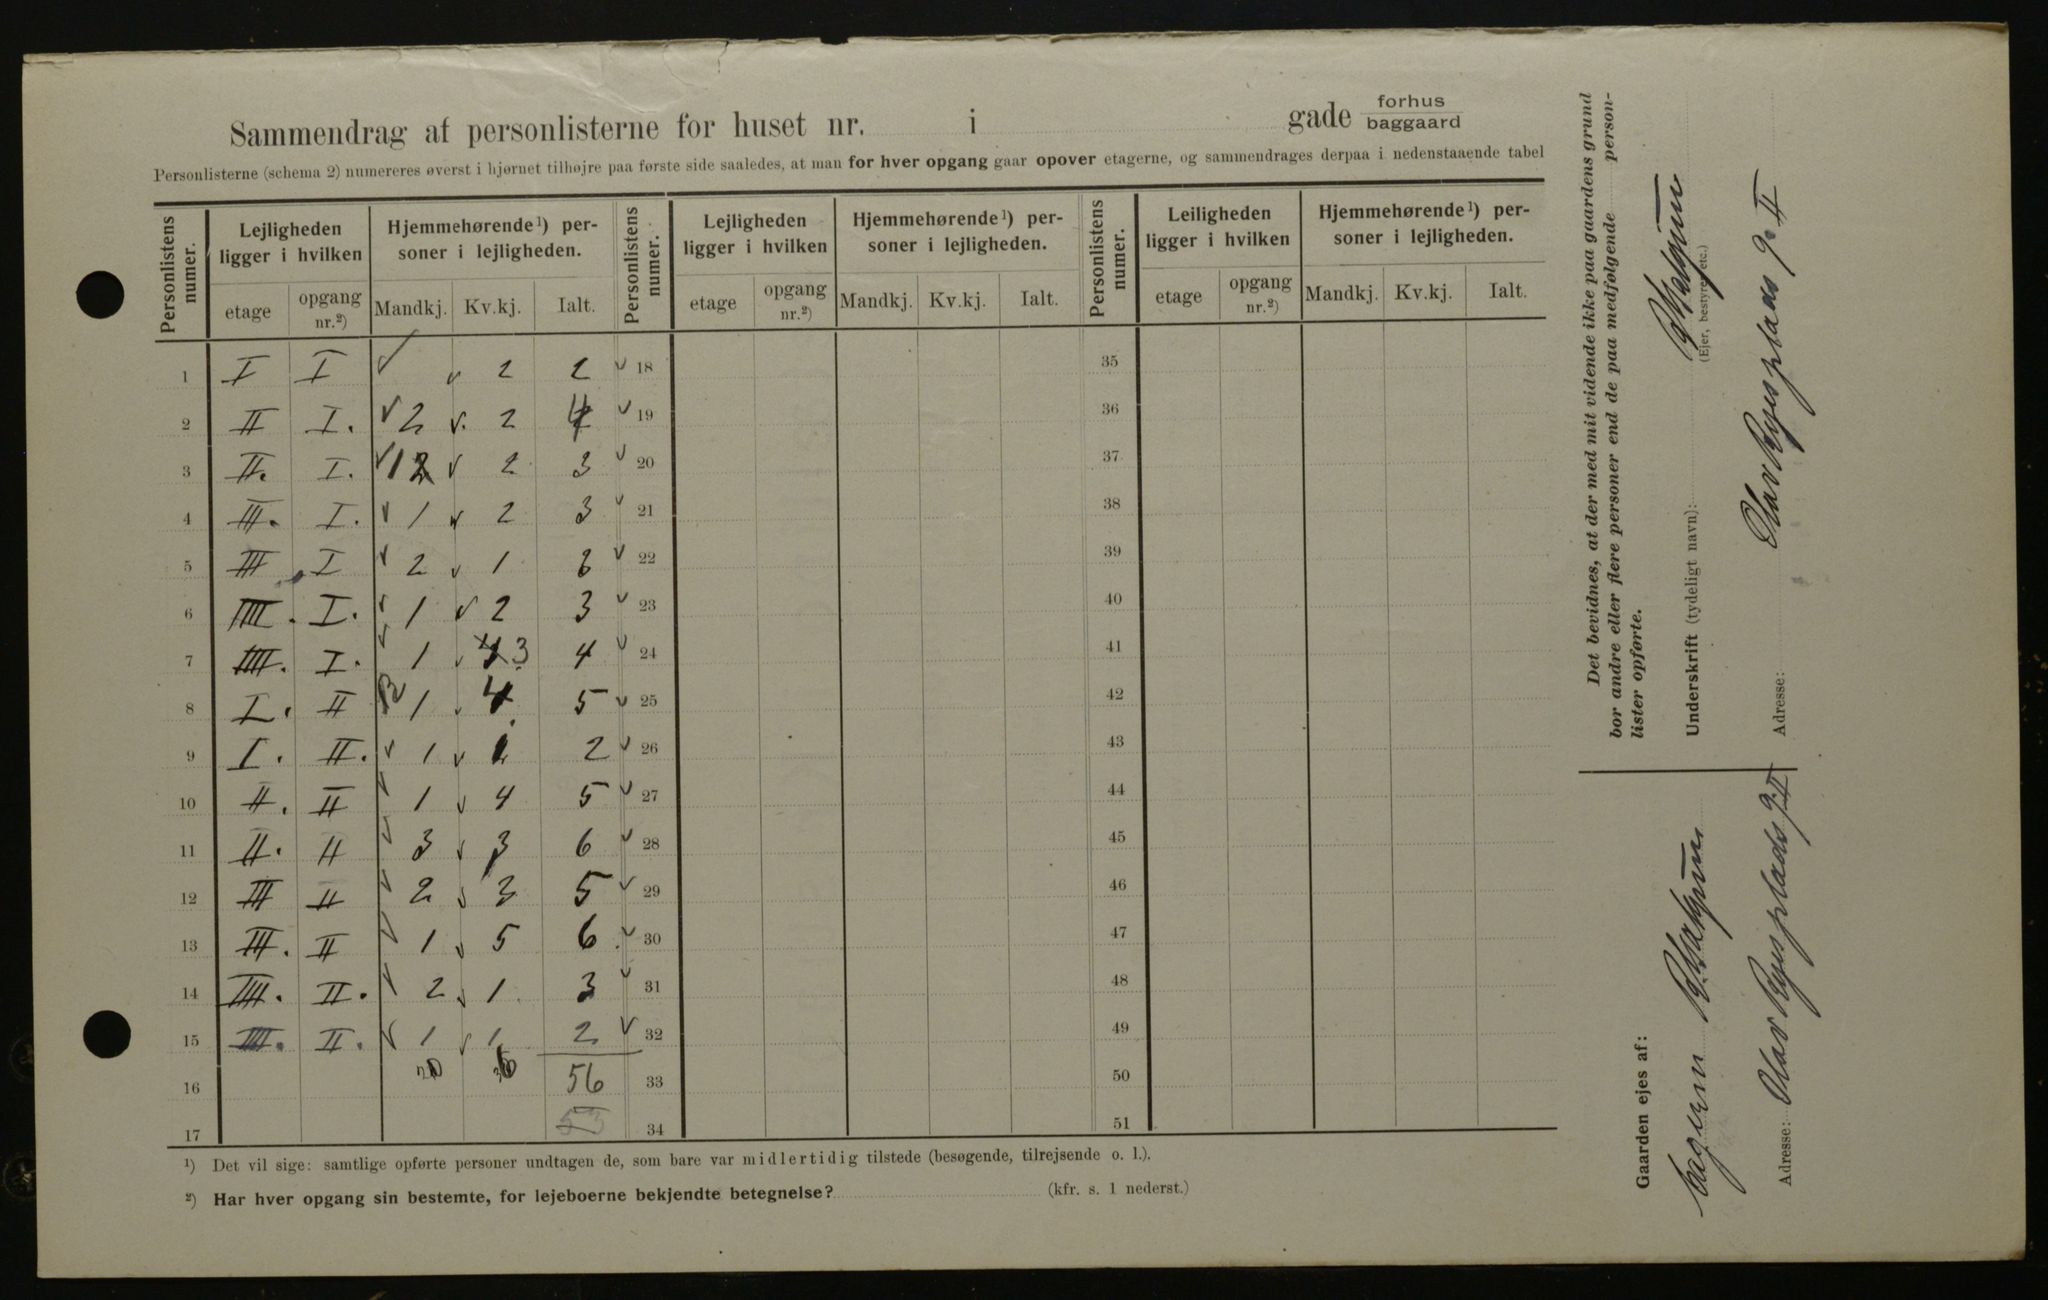 Sammendrag af personlisterne for huset nr. i gade forhus baggaard
Personlisterne (schema 2) numereres øverst i hjørnet tilhøjre paa første side saaledes, at man for hver opgang gaar opover etagerne, og sammendrages derpaa i nedenstaaende tabel
Personlistens numer. Lejligheden ligger i hvilken Hjemmehørende¹) personer i lejligheden. Personlistens numer. Lejligheden ligger i hvilken Hjemmehørende¹) personer i lejligheden. Personlistens numer. Leiligheden ligger i hvilken Hjemmehørende¹) personer i lejligheden.
etage opgang nr.²) Mandkj. Kv.kj. Ialt. etage opgang nr.²) Mandkj. Kv.kj. Ialt. etage opgang nr.²) Mandkj. Kv.kj. Ialt.
1 I I 2 2 18 35
2 II I. 2 2 4 19 36
3 II. I. 1 2 2 3 20 37
4 III. I. 1 2 3 21 38
5 III I 2 1 3 22 39
6 IIII. I. 1 2 3 23 40
7 IIII. I. 1 4 3 4 24 41
8 I. II 1 4 5 25 42
9 I. II. 1 1 2 26 43
10 II. II 1 4 5 27 44
11 II. II 3 3 6 28 45
12 III II 2 3 5 29 46
13 III. II 1 5 6. 30 47
14 IIII. II. 2 1 3 31 48
15 IIII. II. 1 1 2 32 49
16 20 36 56 33 50
17 53 34 51
¹) Det vil sige: samtlige opførte personer undtagen de, som bare var midlertidig tilstede (besøgende, tilrejsende o. l.).
²) Har hver opgang sin bestemte, for lejeboerne bekjendte betegnelse? (kfr. s. 1 nederst.)
Det bevidnes, at der med mit vidende ikke paa gaardens grund
bor andre eller flere personer end de paa medfølgende person-
lister opførte.
Underskrift (tydeligt navn):
(Ejer, bestyrer etc.)
Adresse: Olav Ryes plads 9. II
Gaarden ejes af:
Adresse: Olav Ryes plads 9. II